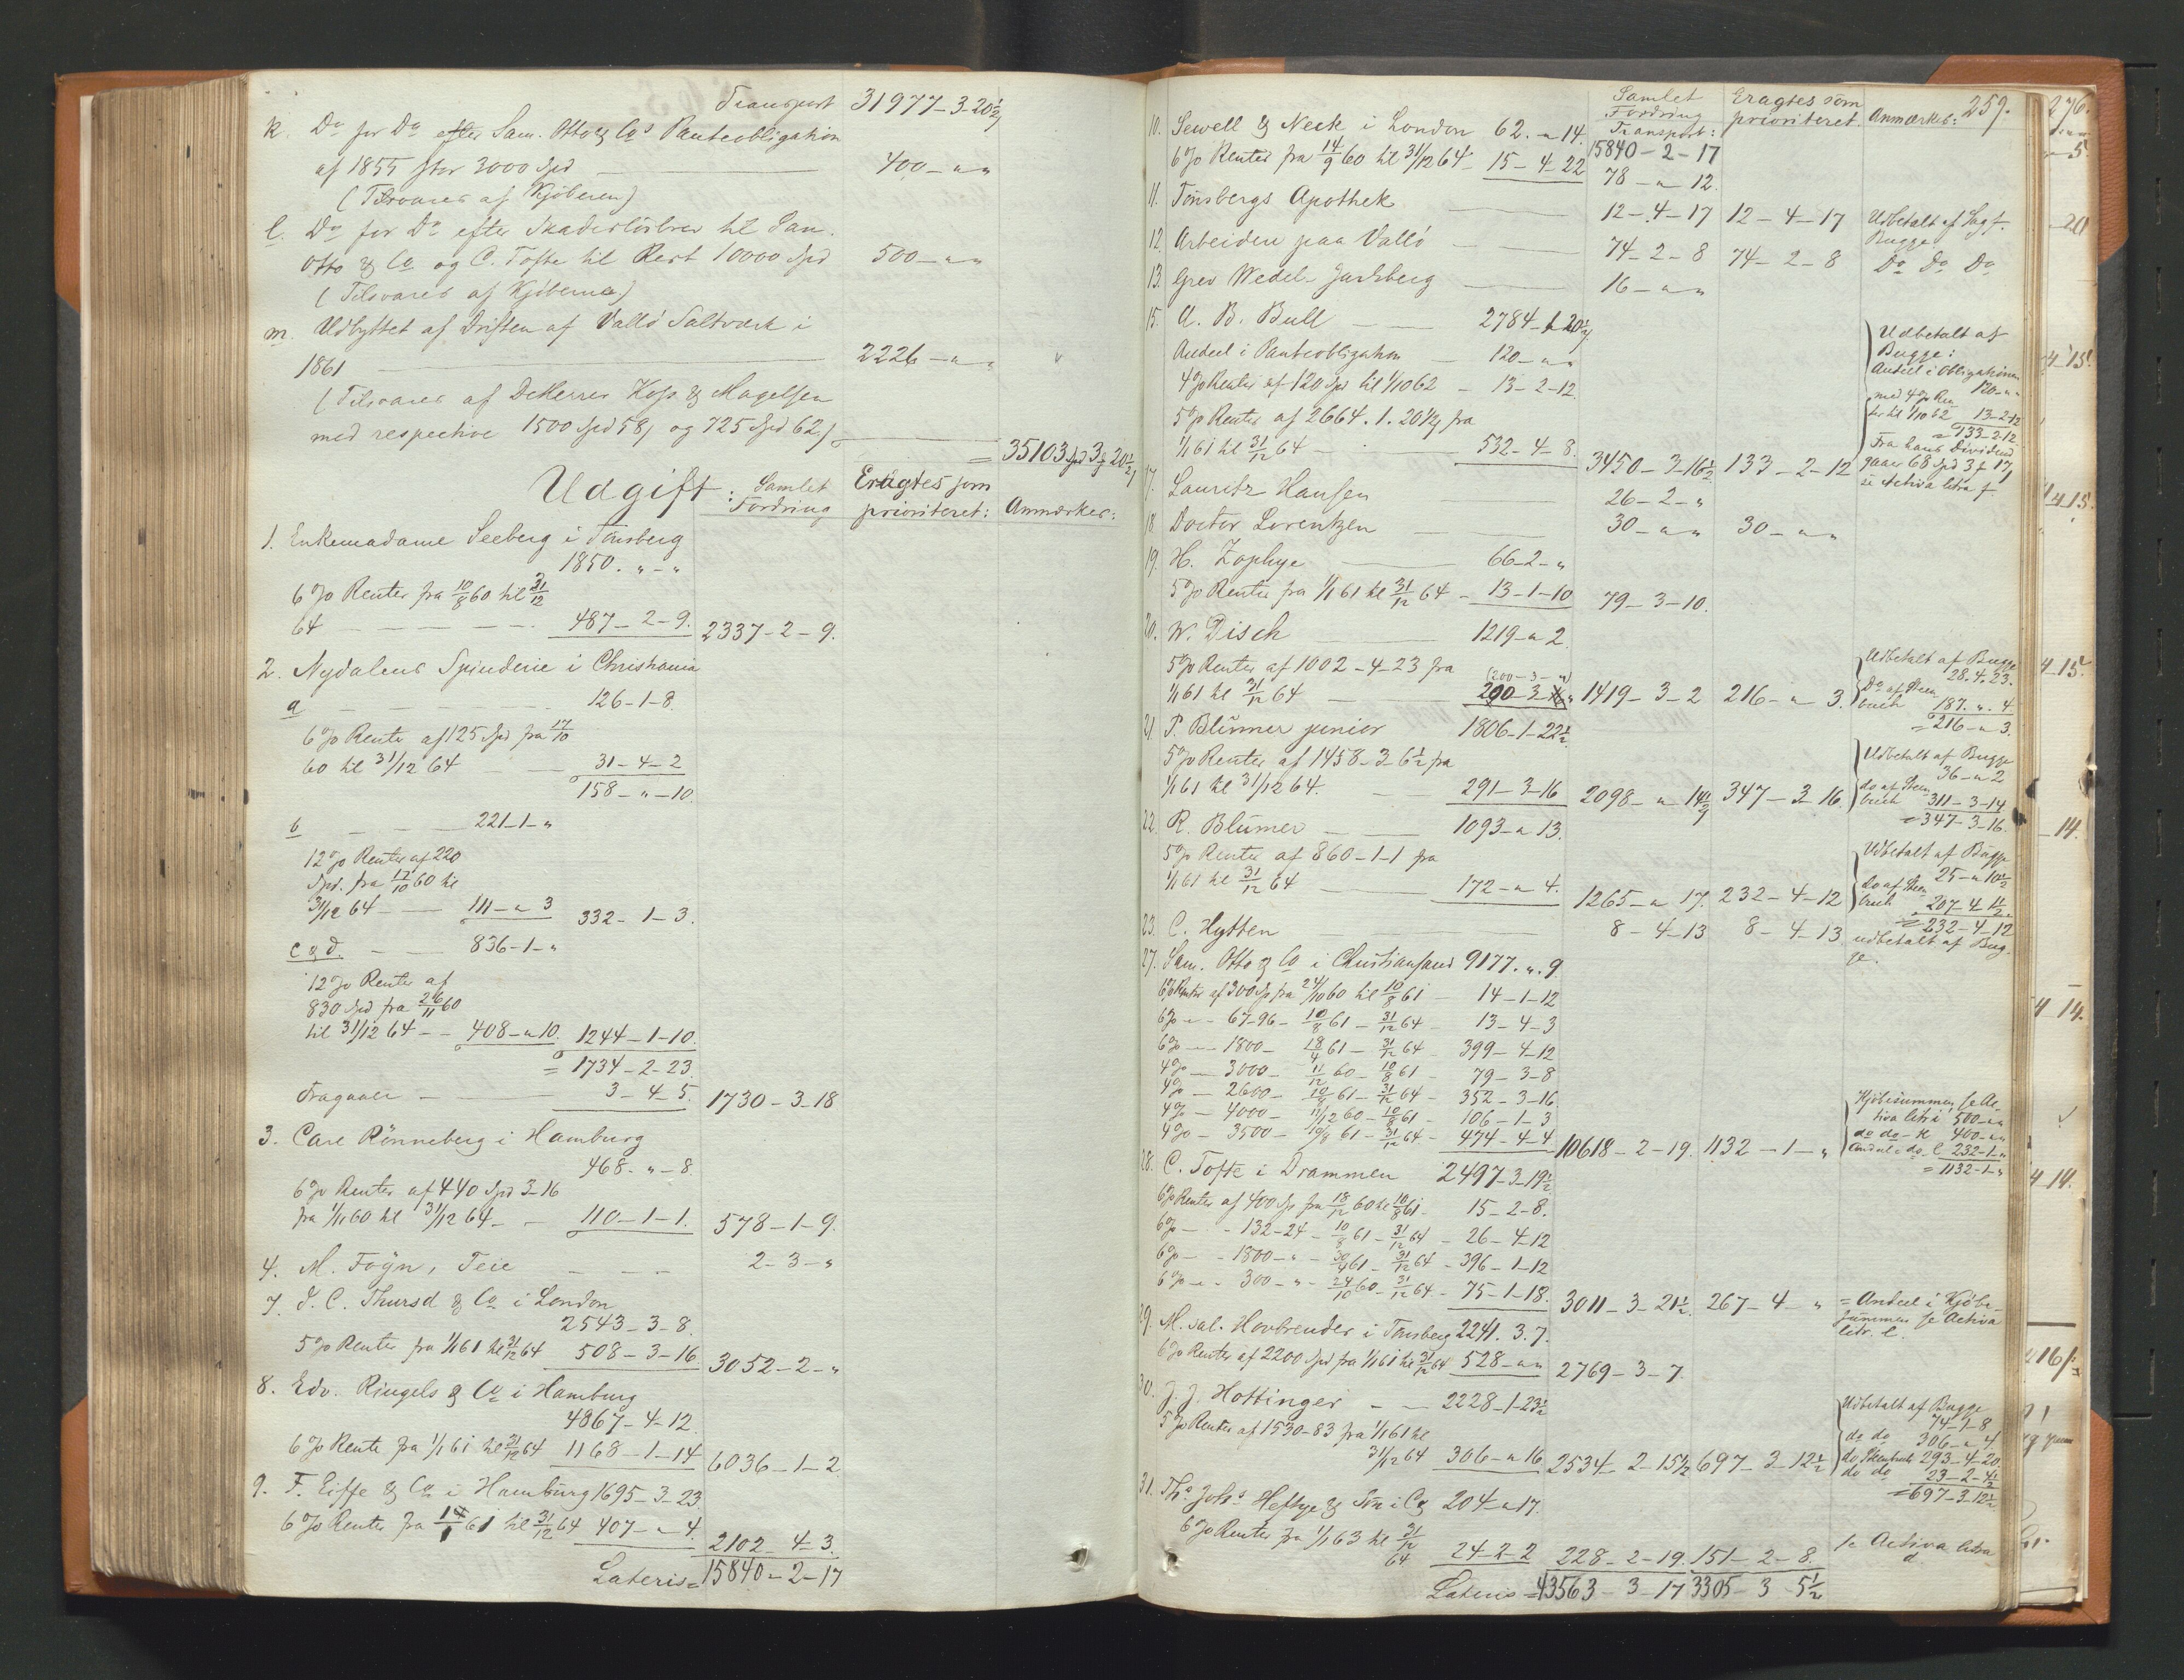 Transport 31977-3-20½
k. Do for Do efter Sam. Otto & Co's Panteobligation
af 1855 stor 3000 Spd — 400 - " "
(Tilsvares af Kjöberen)
l. Do for Do efter Skadeslösbrev til Sam.
Otto & Co og C. Tofte til Rest 10000 Spd 500 - " "
(Tilsvares af Kjöberne)
m. Udbyttet af Driften af Vallö Saltværk i
1861 — 2226 - " "
(Tilsvares af DHerrer Kiss & Magelsen
med respective 1500 Spd 58 og 725 Spd 62)
= 35103 Spd 3 20½
Udgift: Samlet Fordring Eragtes som prioriteret: Anmærkes:
1. Enkemadame Seeberg i Tönsberg
1850. " - "
6 % Renter fra 10/8 60 til 31/12
64 — 487-2-9. 2337-2-9.
2. Nydalens Spinderie i Christiania
a — 126-1-8.
6 % Rente af 125 Spd fra 17/10
60 til 31/12 64 — 31-4-2
158-"-10.
b — 221-1-"
12 % Renter af 220
Spd. fra 17/10 60 til
31/12 64 — 111-"-3 332-1-3.
c & d. — 836-1-"
12 % Renter af
830 Spd fra 26/11 60
til 31/12 64 — 408-"-10. 1244-1-10.
= 1734-2-23.
Fragaaer — 3-4-5. 1730-3-18
3. Carl Rönneberg i Hamburg
468-"-8.
6 % Renter af 440 Spd 3-16
fra 1/11 60 til 31/12 64 — 110-1-1. 578-1-9.
4. M. Föyn, Teie — 2-3-"
7. J. C. Thursd & Co i London
2543-3-8.
5 % Renter fra 1/1 61 til 31/12 64 508-3-16 3052-2-"
8. Edv. Ringels & Co i Hamburg
4867-4-12.
6 % Rente fra 1/1 61 til 31/12 64 1168-1-14 6036-1-2.
9. F. Eiffe & Co i Hamburg 1695-3-23.
6 % Renter fra 61 til 31/12 64 407-"-4. 2102-4-3.
Lateris = 15840-2-17
Samlet Fordring Eragtes som prioriteret. Anmærkes: 259.
10. Sewell & Neck i London 62.-"-14. Transport: 15840-2-17
6 % Renter fra 14/9 60 til 31/12 64 - 15-4-22 78-"-12.
11. Tönsbergs Apothek — 12-4-17 12-4-17 Udbetalt af Sagf.
Bugge
12. Arbeidere paa Vallö — 74-2-8 74-2-8 Do Do Do
13. Grev Wedel-Jarlsberg — 16-" "
15. A. B. Bull — 2784-1-20½
Andeel i Panteobligation — 120-" "
4 % Renter af 120 Spd til 1/10 62 - 13-2-12.
5 % Renter af 2664. 1. 20½ fra
1/1 61 til 31/12 64 — 532-4-8. 3450-3-16½ 133-2-12
Udbetalt af
Bugge:
Andeel i Obligationen
120-" "
med 4 % Ren
ter til 1/10 62 13-2-12
= 133-2-12.
Fra hans Dividend
gaaer 68 Spd 3 17
se Activa litra f.
17. Lauritz Hansen — 26-2-"
18. Doctor Lorentzen — 30-" " 30-" "
19. H. Zophye — 66-2-"
5 % Renter fra 1/1 61 til 31/12 64 - 13-1-10 79-3-10.
20. W. Disch — 1219-"-2.
5 % Renter af 1002-4-23 fra
(200-3-")
1/1 61 til 31/12 64 — 200-3-" 1419-3-2 216-"-3.
Udbetalt af Bugge
28.4.23.
Do af Steen
buch 187.".4
= 216-"-3.
21. P. Blümer junior 1806-1-22½
5 % Renter af 1458-3 6½ fra
1/1 61 til 31/12 64. — 291-3-16 2098-"-14½ 347-3-16.
Udbetalt af Bugge
36-"-2
do af Steen
buch 311-3-14
= 347-3-16.
22. R. Blümer — 1093-"-13.
5 % Renter af 860-1-1 fra
1/1 61 til 31/12 64 — 172-"-4. 1265-"-17. 232-4-12
Udbetalt af Bugge
25-"-10½
do af Steen
buch 207-4-1½.
= 232-4-12
23. C. Hytten — 8-4-13 8-4-13 udbetalt af Bug-
ge.
27. Sam. Otto & Co i Christiansand 9177.".9
6 % Renter af 300 Sp fra 24/10 60 til 10/8 61 - 14-1-12
6 % - " - 67-96 - 10/8 61 - 31/12 64 - 13-4-3
6 % - " - 1800 - 18/4 61 - 31/12 64 - 399-4-12
4 % - 3000 - 11/12 60 - 10/8 61 - 79-3-8
4 % - 2600 - 10/8 61 - 31/12 64 - 352-3-16.
4 % - 4000 - 11/12 60 - 10/8 61 - 106-1-3
4 % - 3500 - 10/8 61 - 31/12 64 - 474-4-4. 10618-2-19. 1132-1-"
Kjöbesummen se Ac-
tiva litr i 500-" "
do do - k 400-" "
Andeel i do. l 232-1-"
= 1132-1-"
28. C. Tofte i Drammen 2497-3-19½
6 % Renter af 400 Sp fra 18/12 60 til 10/8 61 - 15-2-8.
6 % - - 132-24 - 10/8 61 - 31/12 64 - 26-4-12
6 % - - 1800-" - 30/4 61 - 31/12 64 - 396-1-12
6 % - " - 300-" - 24/10 60 - 31/12 64 - 75-1-18. 3011-3-21½. 267-4-" = Andeel i Kjöbe-
summen se Activa
litr. l.
29. M. sal. Hovbrender i Tönsberg 2241. 3. 7.
6 % Renter af 2200 Spd fra 1/1 61 til 31/12 64 528-" " 2769-3-7.
30. J. J. Hottinger — 2228-1-23½
5 % Renter af 1530-83 fra 1/1 61 til
31/12 64 306-"-16. 2534-2-15½ 697-3-12½
Udbetalt af Bugge
74-1-8
do do 306-"-4
do Steenbuch 293-4-20.
do do 23-2-4½
= 697-3-12½
31. Ths Johs Heftye & Sön i Ca 204-"-17.
6 % Renter fra 1/1 63 til 31/12
64 24-2-2 228-2-19. 151-2-8. se Activa litra
d.
Lateris = 43563-3-17 3305-3-5½
276.